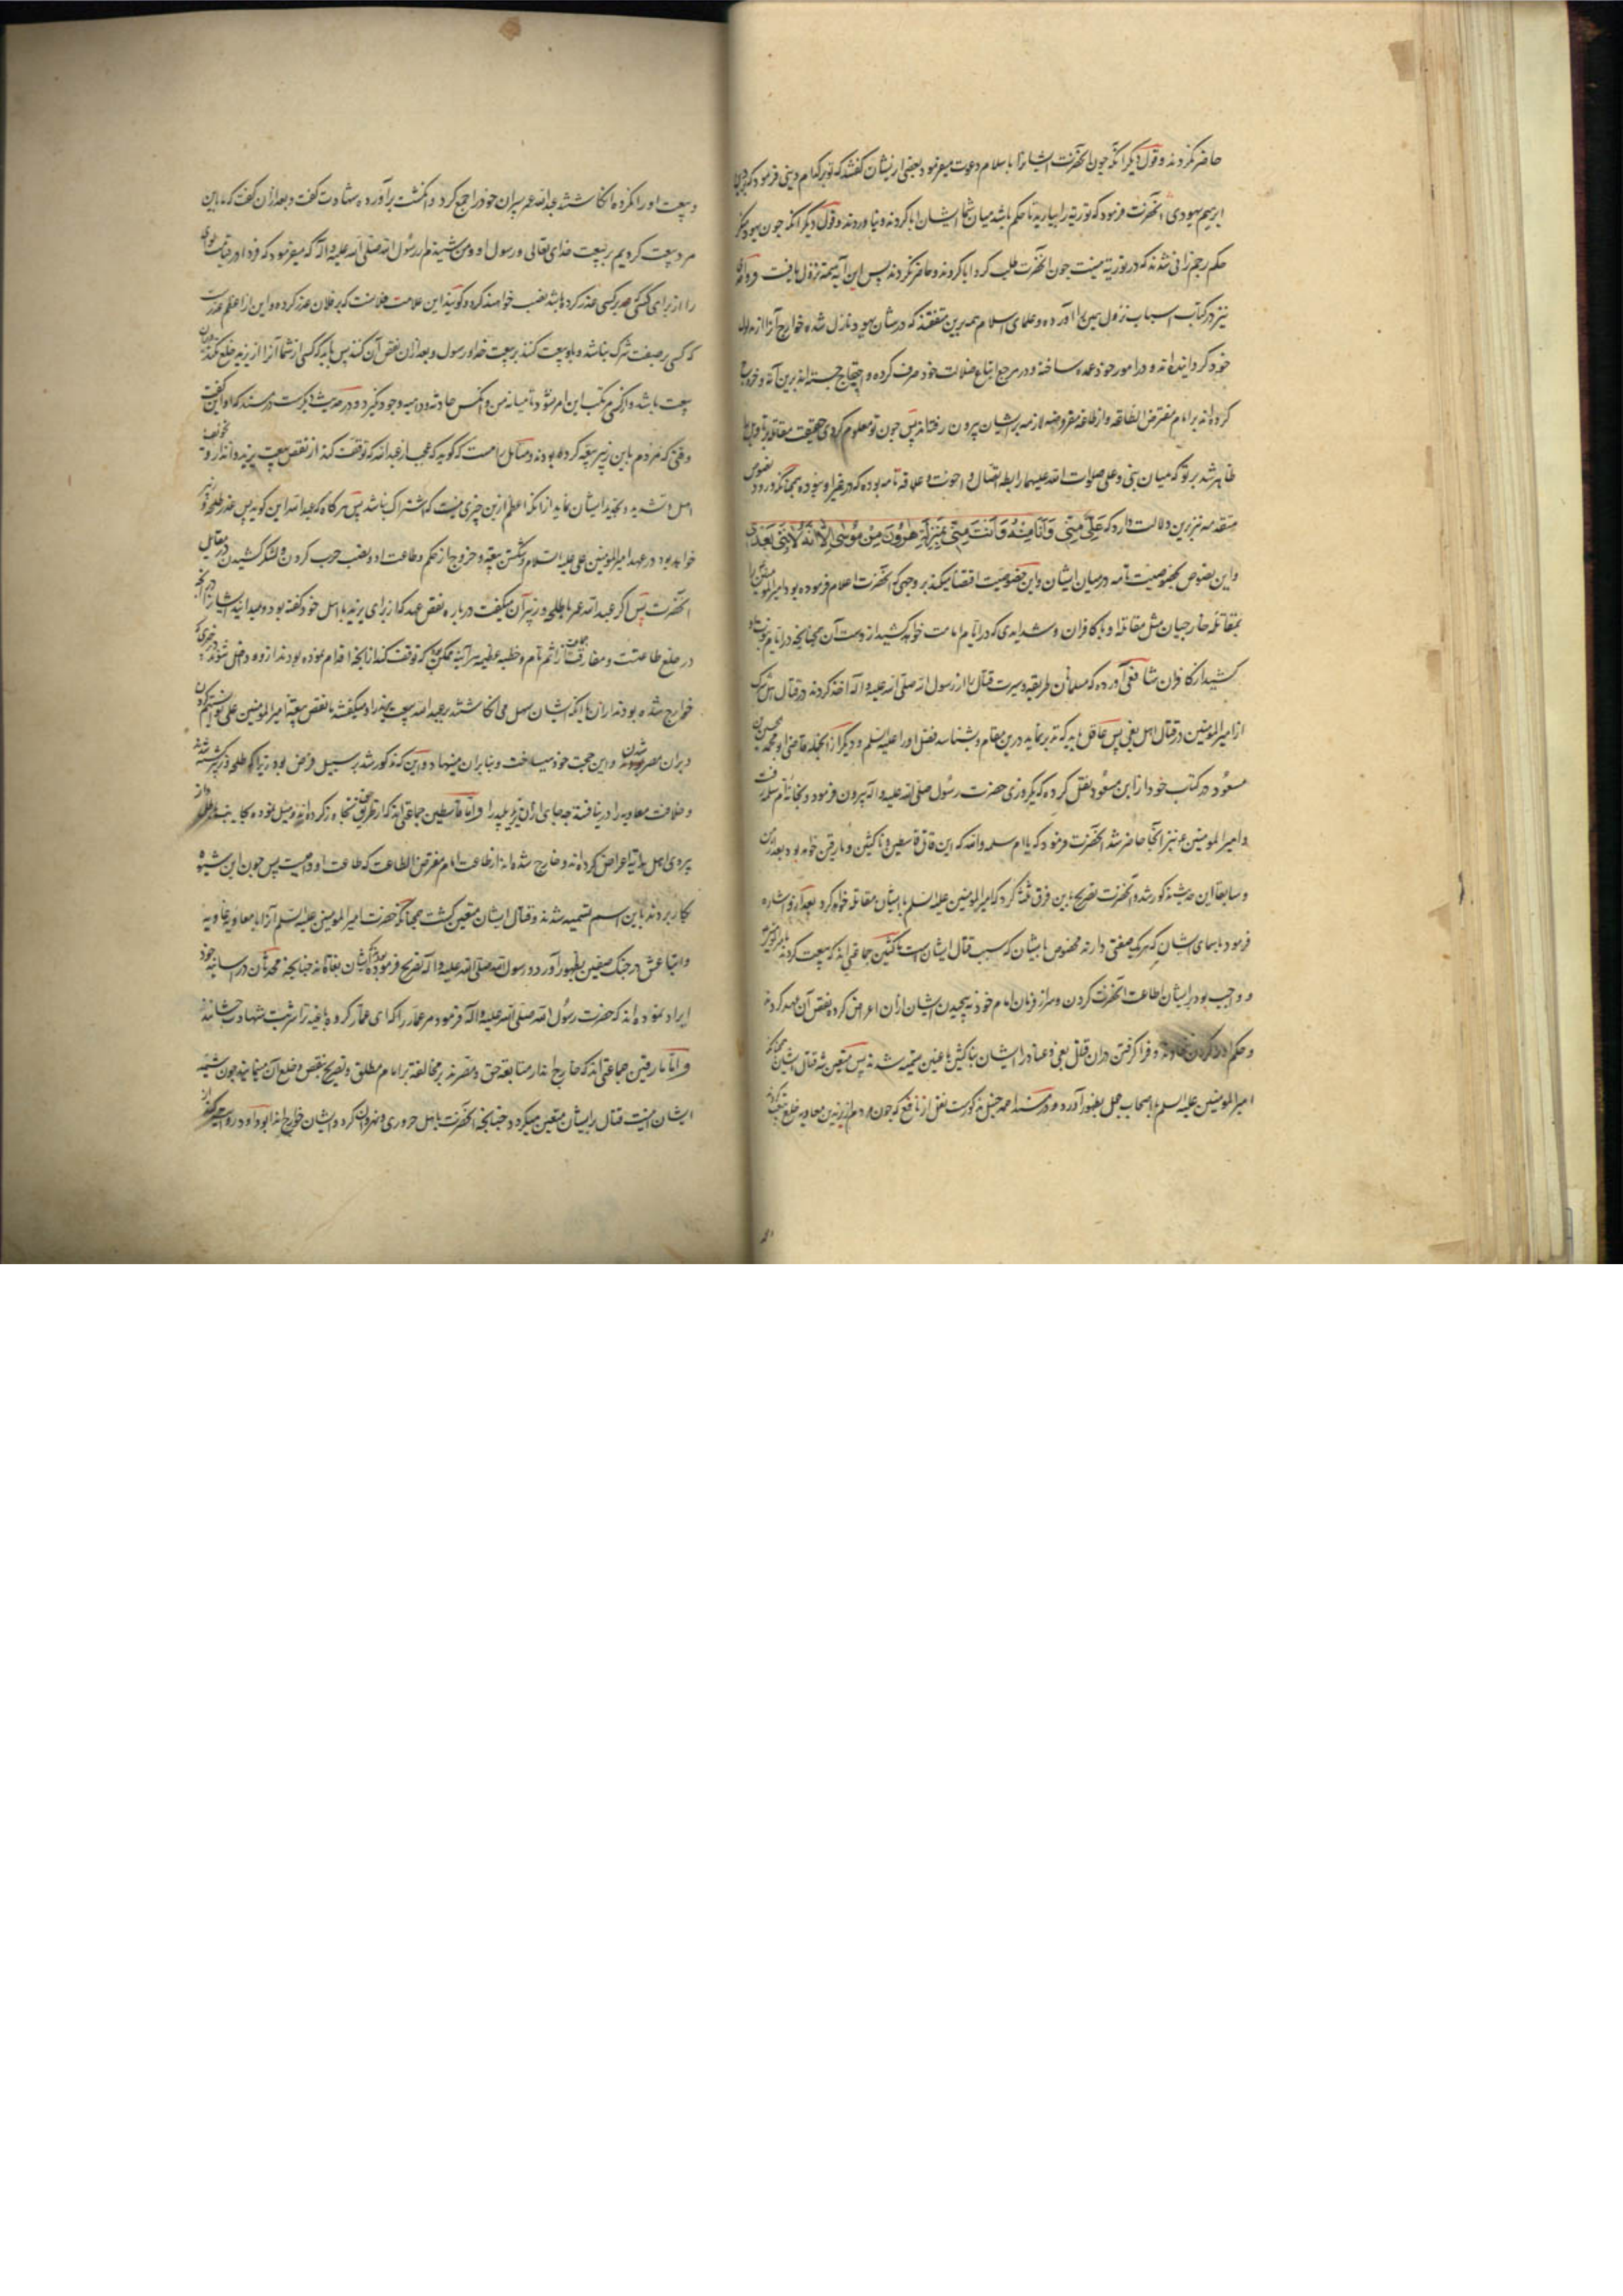 حاضر نکردند و قول دیگر آنکه چون آنحضرت ایشانرا باسلام دعوت میفرمود بعضی از ایشان گفتند که تو بر کدام دینی فرمود که بر دین
ابرهیم یهودی آنحضرت فرمود که توریة را بیارید تا حکم باشد میان شما ایشان ابا کردند و نیاوردند و قول دیگر آنکه چون یهود منکر
حکم رجم زانی شدند که در توریة نیست چون آنحضرت طلب کرد ابا کردند و حاضر نکردند پس این آیه نزول یافت و واحدی
نیز در کتاب اسباب نزول همین را آورده و علمای اسلام همه برین متفقند که در شان یهود نازل شده خوارج آنرا از مدلول
خود گردانیده‌اند و در امور خود عمده ساخته و در مرجع اتباع ضلالت خود صرف کرده و احتجاج جسته‌اند برین آیه و خروج
کرده‌اند بر امام مفترض الطاعه و از طاعة مفروضه لازمه بر ایشان بیرون رفته‌اند پس چون تو معلوم کردی حقیقت مقاتله
ظاهر شد بر تو که میان نبی و علی صلوات الله علیهما رابطه اتصال و اخوت و علاقه تامه بوده که در غیر او نبوده همچنانکه در ورود نصوص
متقدمه نیز برین دلالت دارد که عَلِیٌّ مِنِّی وَاَنَا مِنْهُ وَ اَنْتَ مِنِّی بِمَنْزِلَةِ هٰرُونَ مِنْ مُوسٰی اِلَّا اَنَّهُ لَا نَبِیَّ بَعْدِی
و این نصوص بخصوصیت تامه در میان ایشان و این خصوصیت اقتضا میکند بر وجهی که آنحضرت اعلام فرموده بود امیرالمؤمنین را
بمقاتله خارجیان مثل مقاتله او با کافران و شدایدی که در ایام امامت خواهد کشید از دست آن همچنانچه در ایام
کشید از کافران شافعی آورده که مسلمانان طریقه و سیرت قتال را از رسول الله صلی الله علیه و آله اخذ کردند در قتال اهل شرک
از امیرالمؤمنین در قتال اهل بغی پس عاقل باید که تدبر نماید درین مقام و بشناسد فضل او را علیه السلم و دیگر از آنجمله قاضی ابو محمد حسین بن
مسعود در کتاب خود از ابن مسعود نقل کرده که یکروزی حضرت رسول صلی الله علیه و آله بیرون فرمود و بخانه ام سلمه رفت
و امیرالمؤمنین نیز آنجا حاضر شد آنحضرت فرمود که یا ام سلمه والله که این قاتل قاسطین و ناکثین و مارقین خواهد بود بعد از من
و سابقا این حدیث مذکور شد و آنحضرت تصریح باین فرق ثلثه کرد که امیرالمؤمنین علیه السلم با ایشان مقاتله خواهد کرد بعد از او و اشاره
فرمود باسمای ایشان که هر یک صفتی دارند مخصوص بایشان که سبب قتال ایشان است ناکثین جماعتی‌اند که بیعت کردند
و واجب بود بر ایشان اطاعت آنحضرت کردن و سر از فرمان امام خود نپیچیدن ایشان از آن اعراض کرده نقض آن عهد کردند
و فرا گرفتن در آن قتال بغی و عناد را ایشان ناکثین باغین تسمیه شدند پس متعین شد قتال ایشان همچنانکه
امیرالمؤمنین علیه السلم با اصحاب جمل بظهور آورد و در مسند احمد حنبل مذکورست نقل از نافع که چون مردم از یزید بن معاویه خلع
و بیعت او را نکرده انکاشتند عبدالله عمر پسران خود را جمع کرد و انگشت برآورده شهادت گفت و بعد از آن گفت که ما باین
مرد بیعت کردیم بر بیعت خدای تعالی و رسول او و من شنیدم از رسول الله صلی الله علیه و آله که میفرمود که فردا در قیامت
را از برای کسی که بر کسی غدر کرده باشد نصب خواهند کرد و گویند این علامت فلانست که بر فلان غدر کرده و این از اعظم غدرست
که کسی بر صفت شرک نباشد و با او بیعت کنند بر بیعت خدا و رسول و بعد از آن نقض آن کنند پس باید که کسی از شما آنرا از یزید خلع نکند
بیعت باشد و اگر کسی مرتکب این امر شود تا میانه من و آنکس حادثه وجود گیرد و در حدیث دیگر ست در مسند که او این گفت
وقتی که مردم با ابن زبیر بیعة کرده بودند و متأمل را هست که گوید که عجب از عبدالله که توقف کند از نقض بیعت یزید و انذار و تخویف
اهل و تشدید و تهدید ایشان نماید از آنکه اعظم ازین چیزی نیست که اشتراک نباشد پس هرگاه که عبدالله این گوید پس عذر طلحه و زبیر
خواهد بود در عهد امیرالمؤمنین علی علیه السلام و شکستن بیعة و خروج از حکم و طاعت او و نصب حرب کردن و لشکر کشیدن در مقابل
آنحضرت پس اگر عبدالله عمر با طلحه و زبیر آن میگفت درباره نقض عهد که از برای یزید با اهل خود گفته بود
در خلع طاعتت و مفارقت جماعت از اثم تام و خطیه عظیمه هرآینه ممکن بود که توقف کنند از آنچه اقدام نموده بودند از وی
خوارج شده بودند از آن یا آنکه ایشان سهل می‌انکاشتند بر عبدالله بیعت یزید را و میگفتند با نقض بیعة امیرالمؤمنین علی
و بر آن مصر شدن و این حجت خود میساخت و بنابر آن مینهاد و این که مذکور شد بر سبیل فرض بود زیرا که طلحه و زبیر کشته شدند
و خلافت معاویه را در نیافتند چه جای از آن یزید پلید را و اما قاسطین جماعتی‌اند که از طریق حق تجاوز کرده‌اند و میل نموده بجانب باطل
پیروی اهل هدایة اعراض کرده‌اند و خارج شده‌اند از طاعت امام مفترض الطاعت که طاعت او واجبست پس چون این شیوه
بکار بردند باین اسم تسمیه شدند و قتال ایشان متعین گشت همچنانکه حضرت امیرالمؤمنین علیه السلم آنرا با معاویه غاویه
و اتباعش در جنگ صفین بظهور آورد و رسول الله صلی الله علیه و آله تصریح فرموده که ایشان بغاة‌اند چنانچه محدثان در مسانید خود
ایراد نموده‌اند که حضرت رسول الله صلی الله علیه و آله فرمود مر عمار را که ای عمار گروه باغیه ترا شربت شهادت چشانند
و اما مارقین جماعتی‌اند که خارج‌اند از متابعة حق و مصرند بر مخالفة امام مطلق و تصریح بنقض و خلع آن مینمایند چون شیمه
ایشان اینست قتال بر ایشان متعین میگردد چنانچه آنحضرت با اهل حروری و نهروان کرد و ایشان خوارج‌اند ابوداود روایت کرد